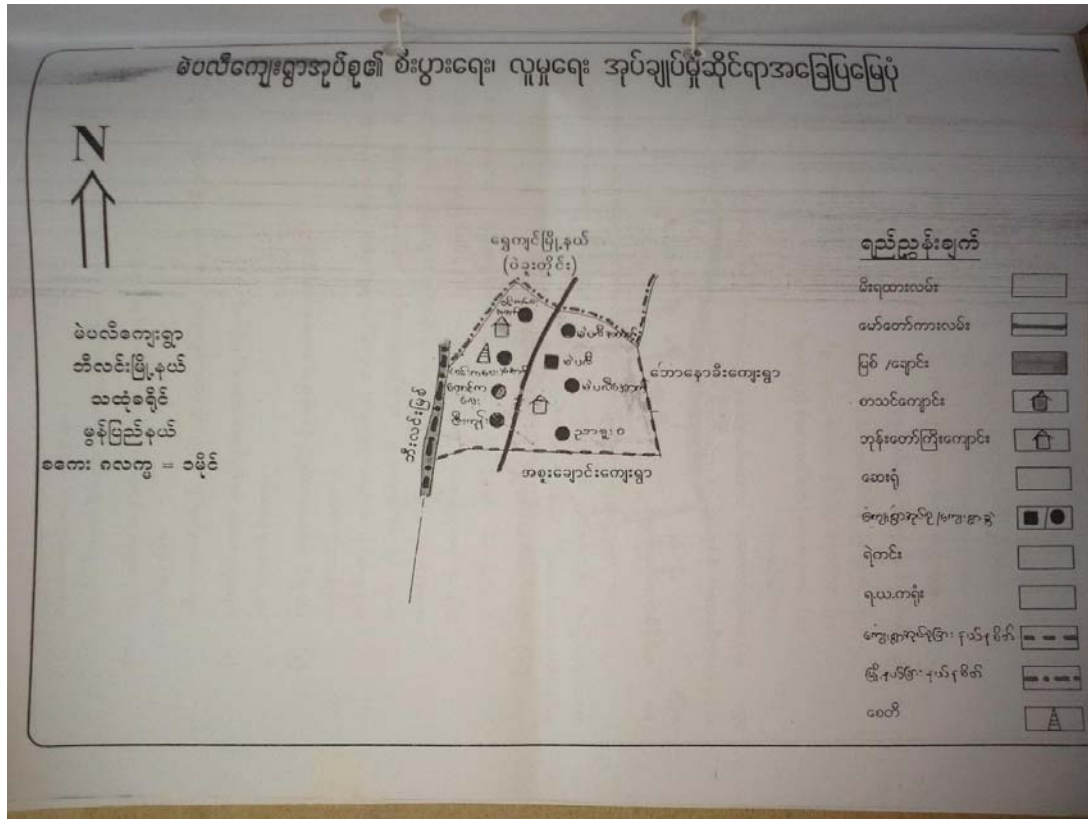 မဲပလီကျေးရွာအုပ်စု၏ စီးပွားရေး၊ လူမှုရေး အုပ်ချုပ်မှုဆိုင်ရာအခြေပြမြေပုံ
N
မဲပလီကျေးရွာ
ဘီလင်းမြို့နယ်
သထုံခရိုင်
မွန်ပြည်နယ်
စကေး ၁လက္မ = ၁မိုင်
ရွှေကျင်မြို့နယ်
(ပဲခူးတိုင်း)
မဲပလီ
ဘီးလင်းမြစ်
ဘောနောခီးကျေးရွာ
အစူးချောင်းကျေးရွာ
ရည်ညွှန်းချက်
မီးရထားလမ်း
မော်တော်ကားလမ်း
မြစ် /ချောင်း
စာသင်ကျောင်း
ဘုန်းတော်ကြီးကျောင်း
ဆေးရုံ
ကျေးရွာအုပ်စု/ကျေးရွာ
ရဲကင်း
ရ.ယ.ကရုံး
ကျေးရွာအုပ်စုခြား နယ်နိမိတ်
မြို့နယ်ခြား နယ်နိမိတ်
စေတီ